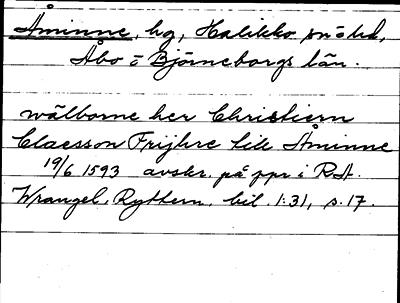 Åminne, hg, Halikko sn o hd,
Åbo o Björneborgs län.
wälborne her Christiern
Claesson Frijhre till Åminne
19/6 1593 avskr. på ppr i R.A.
Wrangel, Ryttern, bil. 1:31, s. 17.